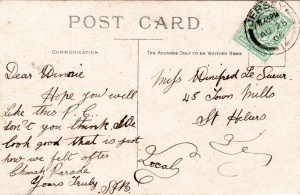 POST CARD.
COMMUNICATION
THE ADDRESS ONLY TO BE WRITTEN HERE
JERSEY
AU 25
Dear Winnie
Hope you well
like this P.C.
don't you think We
look good that is just
how we felt after
Church Parade
Yours Truly
Miss Winifred Le Sueur.
45 Town Mills
St Heliers
Local